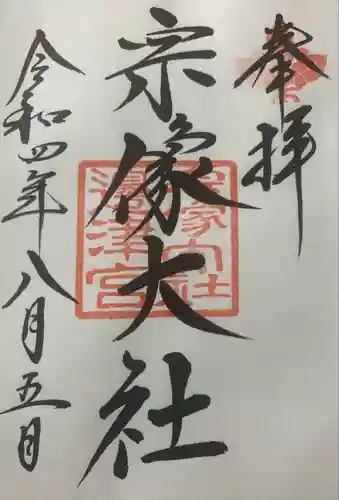 奉拝
宗像大社
令和四年八月五日
宗像大社
邊津宮